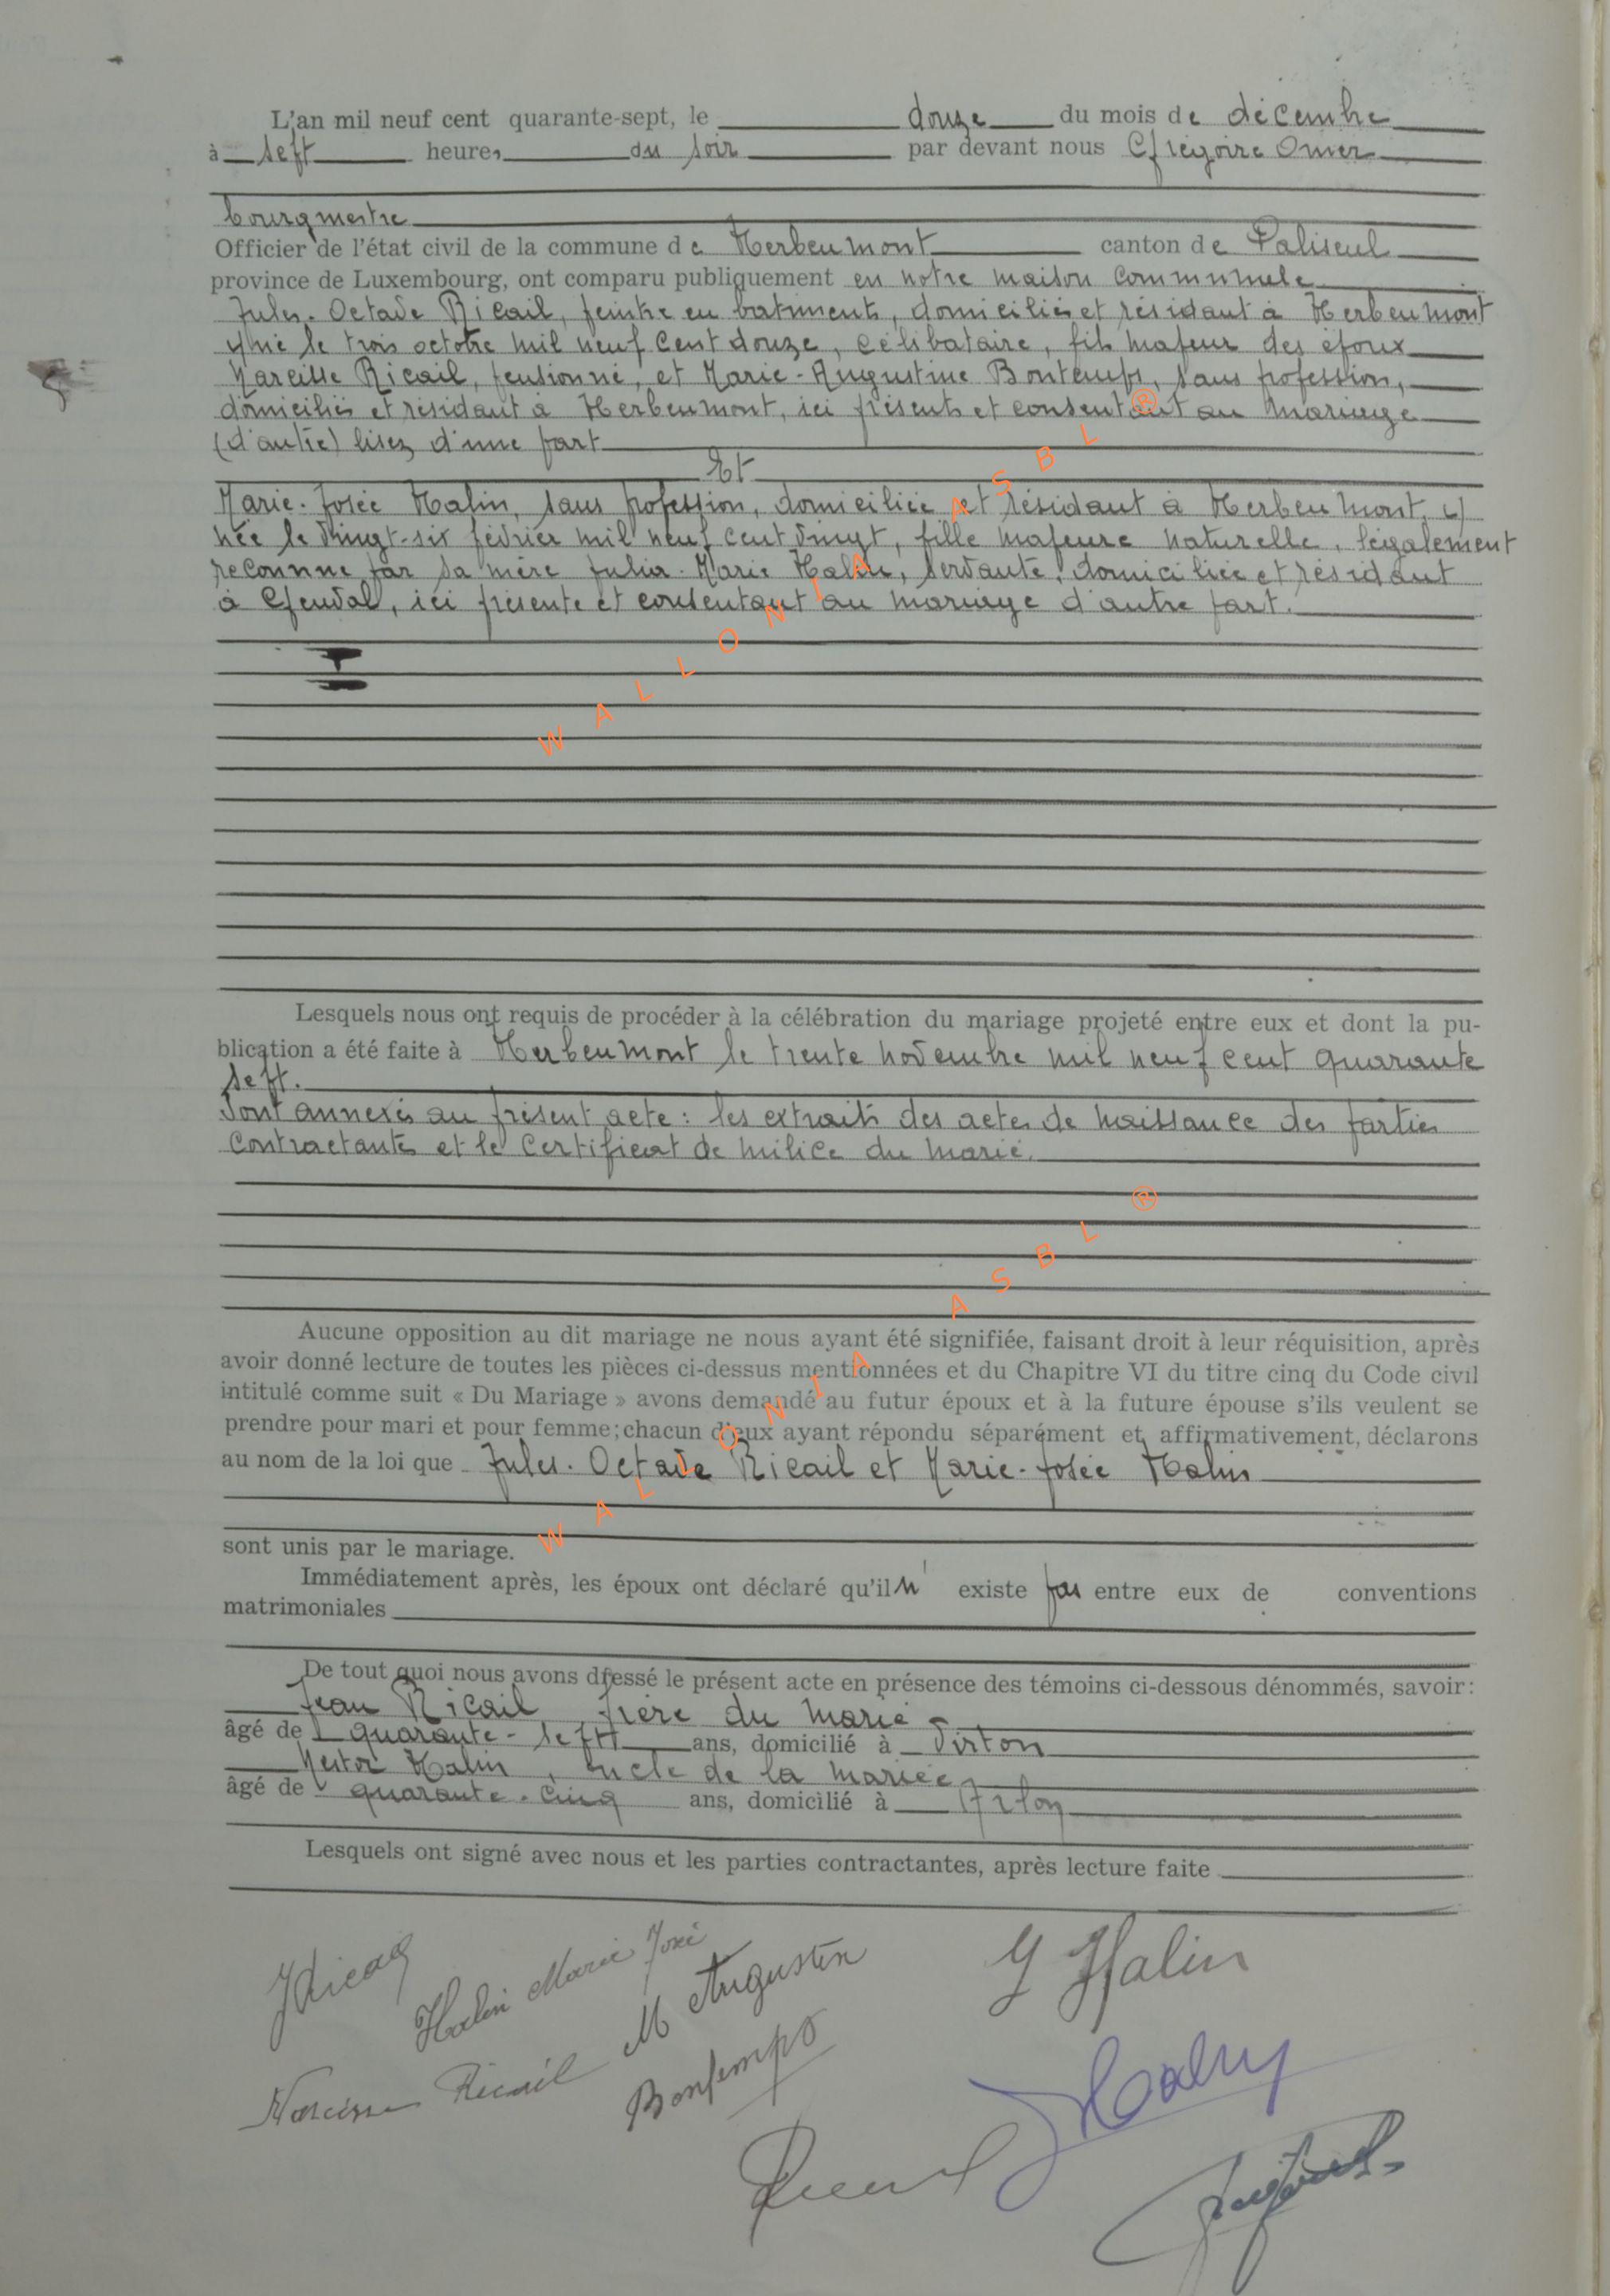 L'an mil neuf cent quarante-sept, le douze du mois de décembre
à sept heures du soir par devant nous Grégoire Omer
bourgmestre
Officier de l'état civil de la commune de Herbeumont canton de Paliseul
province de Luxembourg, ont comparu publiquement en notre maison communale
Jules-Octave Ricail, peintre en batiments, domicilié et résidant à Herbeumont
y né le trois octobre mil neuf cent douze, célibataire, fils majeur des époux
Narcisse Ricail, pensionné, et Marie-Augustine Bontemps, sans profession,
domiciliés et résidant à Herbeumont, ici présents et consentant au mariage
(d'autre) lisez d'une part
Et
Marie-Josée Halin, sans profession, domiciliée et résidant à Herbeumont, y
née le vingt-six février mil neuf cent vingt, fille majeure naturelle, légalement
reconnue par sa mère Julia-Marie Halin, servante, domiciliée et résidant
à Genval, ici présente et consentant au mariage d'autre part.
Lesquels nous ont requis de procéder à la célébration du mariage projeté entre eux et dont la pu-
blication a été faite à Herbeumont le trente novembre mil neuf cent quarante
sept.
Sont annexés au présent acte : les extraits des actes de naissance des parties
contractantes et le certificat de milice du marié.
Aucune opposition au dit mariage ne nous ayant été signifiée, faisant droit à leur réquisition, après
avoir donné lecture de toutes les pièces ci-dessus mentionnées et du Chapitre VI du titre cinq du Code civil
intitulé comme suit « Du Mariage » avons demandé au futur époux et à la future épouse s'ils veulent se
prendre pour mari et pour femme; chacun d'eux ayant répondu séparément et affirmativement, déclarons
au nom de la loi que Jules-Octave Ricail et Marie-Josée Halin
sont unis par le mariage.
Immédiatement après, les époux ont déclaré qu'il n' existe pas entre eux de conventions
matrimoniales
De tout quoi nous avons dressé le présent acte en présence des témoins ci-dessous dénommés, savoir:
Jean Ricail, frère du marié
âgé de quarante-sept ans, domicilié à Virton
Nestor Halin, oncle de la mariée
âgé de quarante-cinq ans, domicilié à Arlon
Lesquels ont signé avec nous et les parties contractantes, après lecture faite
JRicail
Halin Marie José
M Augustin
Bontemps
Narcisse Ricail
J Halin
WALLONIA ASBL ®
WALLONIA ASBL ®